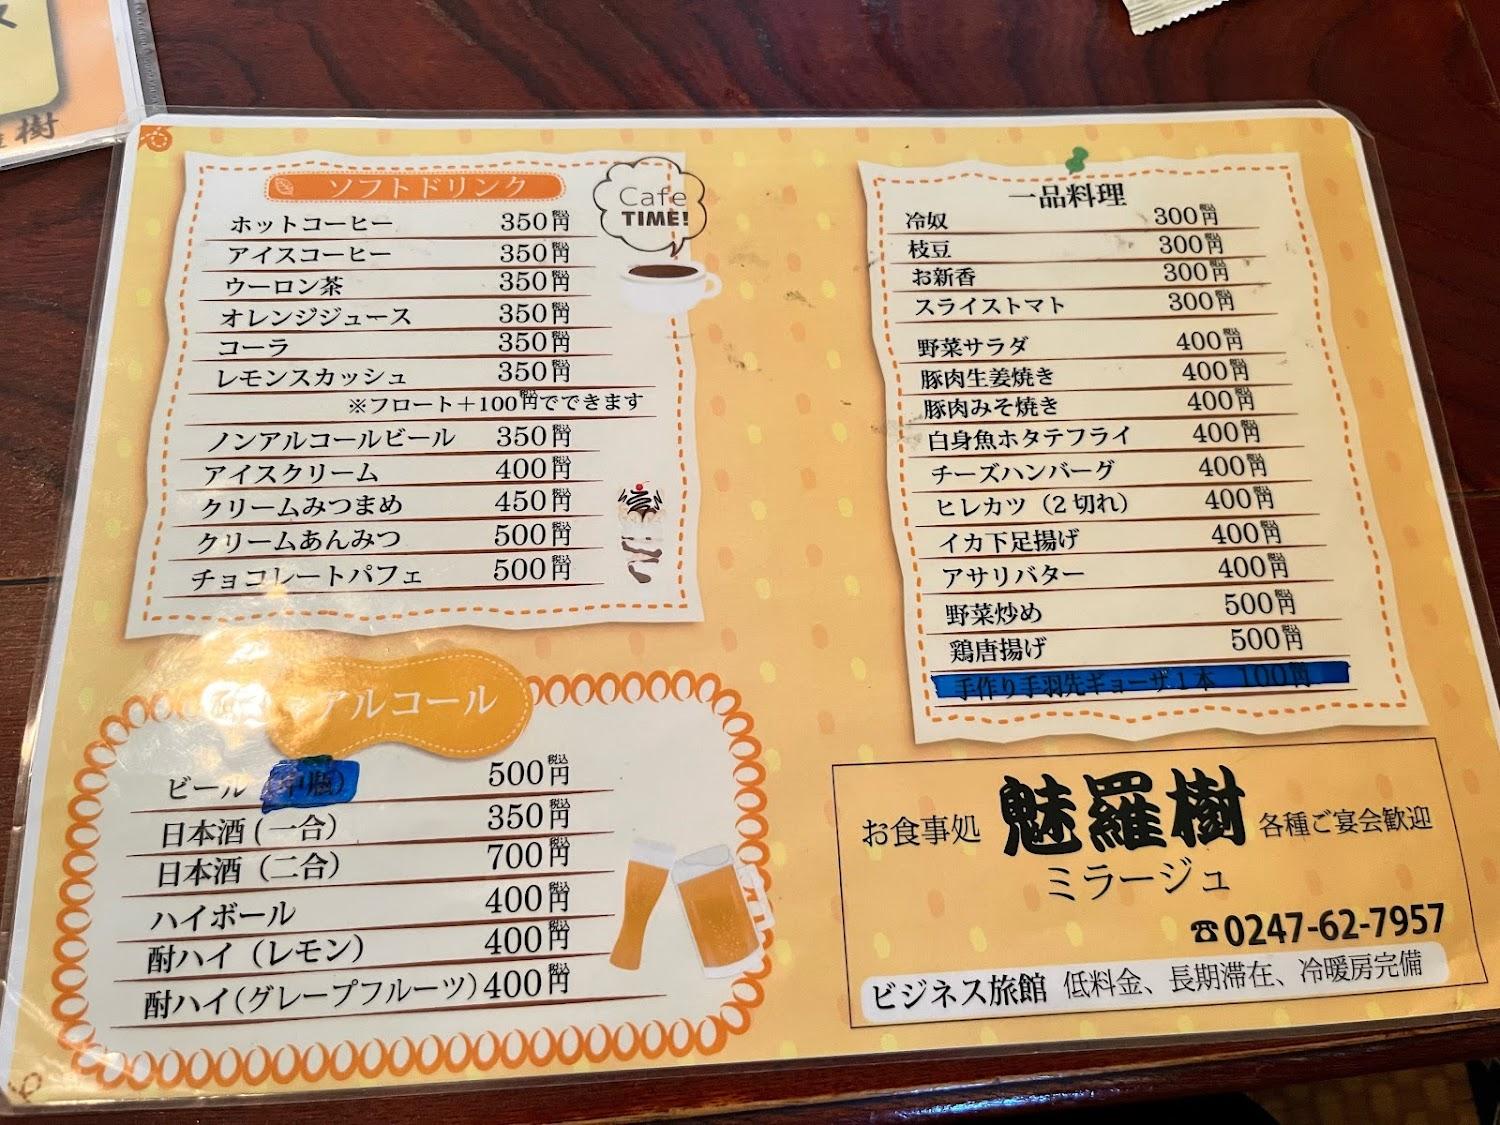 樹
ソフトドリンク
Cafe
TIME!
ホットコーヒー 350円税込
アイスコーヒー 350円税込
ウーロン茶 350円税込
オレンジジュース 350円税込
コーラ 350円税込
レモンスカッシュ 350円税込
※フロート+100円税込でできます
ノンアルコールビール 350円税込
アイスクリーム 400円税込
クリームみつまめ 450円税込
クリームあんみつ 500円税込
チョコレートパフェ 500円税込
アルコール
ビール(中瓶) 500円税込
日本酒(一合) 350円税込
日本酒(二合) 700円税込
ハイボール 400円税込
酎ハイ(レモン) 400円税込
酎ハイ(グレープフルーツ) 400円税込
一品料理
冷奴 300円税込
枝豆 300円税込
お新香 300円税込
スライストマト 300円税込
野菜サラダ 400円税込
豚肉生姜焼き 400円税込
豚肉みそ焼き 400円税込
白身魚ホタテフライ 400円税込
チーズハンバーグ 400円税込
ヒレカツ(2切れ) 400円税込
イカ下足揚げ 400円税込
アサリバター 400円税込
野菜炒め 500円税込
鶏唐揚げ 500円税込
手作り手羽先ギョーザ1本 100円
お食事処 魅羅樹 各種ご宴会歓迎
ミラージュ
☎0247-62-7957
ビジネス旅館 低料金、長期滞在、冷暖房完備